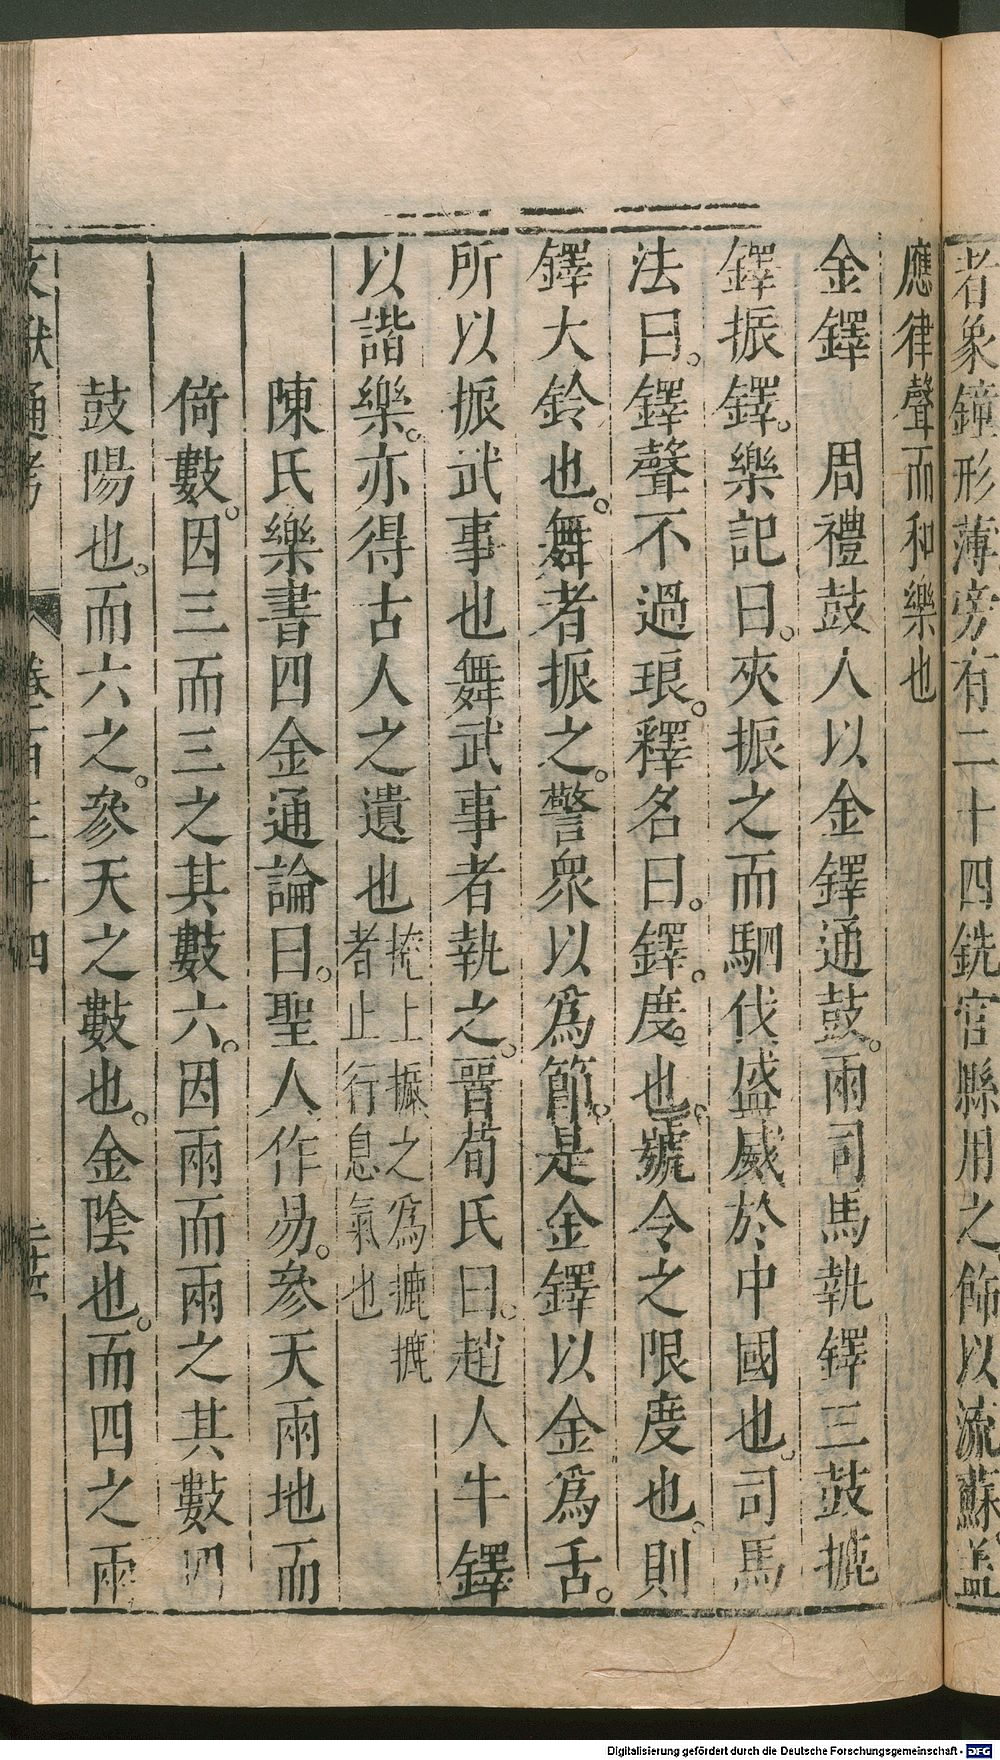 者象鐘形薄旁有二十四銑宮縣用之飾以流蘇蓋
應律聲而和樂也
金鐸　周禮鼓人以金鐸通鼓。兩司馬執鐸三鼓摝
鐸振鐸。樂記曰。夾振之而駟伐盛威於中國也。司馬
法曰。鐸聲不過琅。釋名曰。鐸。度也。號令之限度也。則
鐸大鈴也。舞者振之。警衆以爲節。是金鐸以金爲舌。
所以振武事也舞武事者執之。晉荀氏曰。趙人牛鐸
以諧樂。亦得古人之遺也掩上振之爲摝摝
者止行息氣也
陳氏樂書四金通論曰。聖人作易。參天兩地而
倚數。因三而三之其數六。因兩而兩之其數四
鼓陽也。而六之。參天之數也。金陰也。而四之兩
文獻通考　卷一百三十四
Digitalisierung gefördert durch die Deutsche Forschungsgemeinschaft - DFG